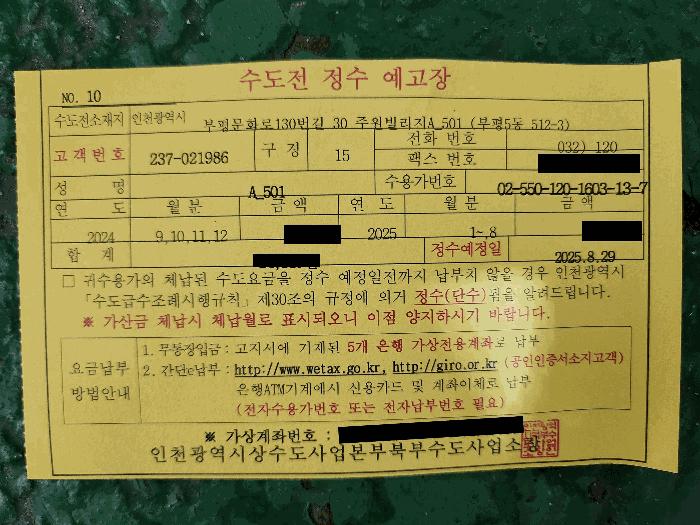 수도전 정수 예고장
NO. 10
수도전소재지 인천광역시 부평문화로130번길 30 주원빌리지A_501 (부평5동 512-3)
고객번호 237-021986 구경 15 전화 번호 032) 120
팩스 번호
성 명 A_501 수용가번호 02-550-120-1603-13-7
연 도 월 분 금 액 연 도 월 분 금 액
2024 9,10,11,12 2025 1~,8
합 계 정수예정일 2025.8.29
□ 귀수용가의 체납된 수도요금을 정수 예정일전까지 납부치 않을 경우 인천광역시
「수도급수조례시행규칙」 제30조의 규정에 의거 정수(단수)됨을 알려드립니다.
※ 가산금 체납시 체납월로 표시되오니 이점 양지하시기 바랍니다.
요금납부 방법안내
1. 무통장입금 : 고지서에 기재된 5개 은행 가상전용계좌로 납부
2. 간단e납부 : http://www.wetax.go.kr, http://giro.or.kr (공인인증서소지고객)
은행ATM기계에서 신용카드 및 계좌이체로 납부
(전자수용가번호 또는 전자납부번호 필요)
※ 가상계좌번호 :
인천광역시상수도사업본부북부수도사업소장